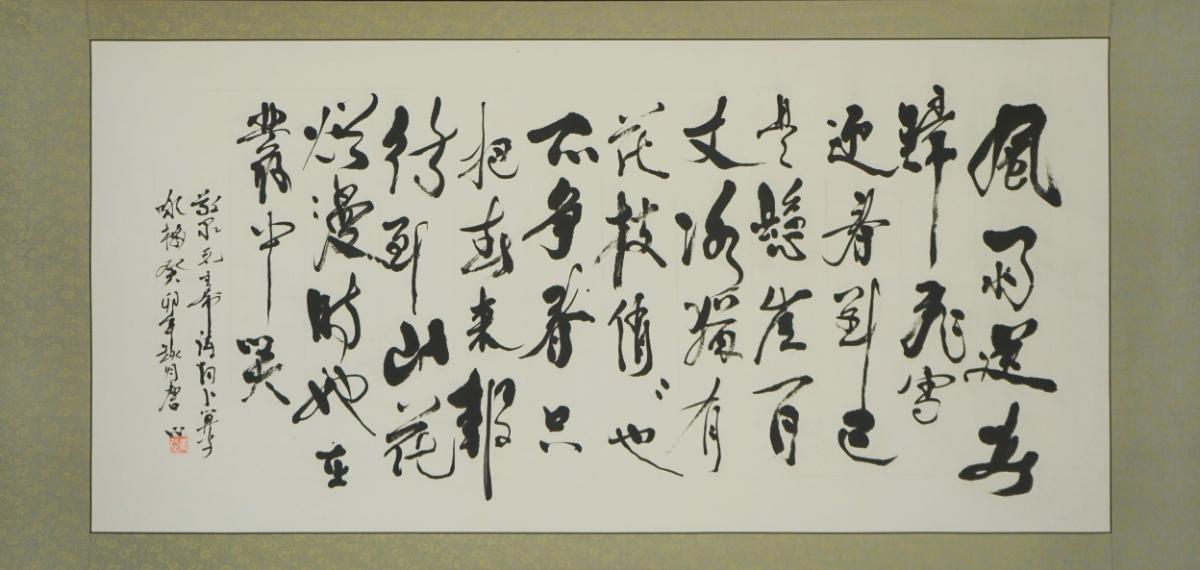 風雨送春
歸飛雪
迎春到已
是懸崖百
丈冰猶有
花枝俏〻也
不争春只
把春来報
待到山花
爛漫時她在
叢中笑
敬录毛主席詩詞卜算子
咏梅 癸卯年秋月唐